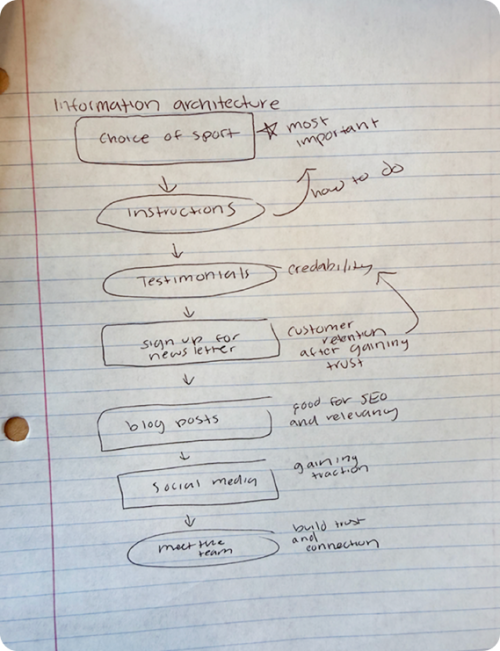 Information architecture
Choice of sport
☆ most
important
how to do
instructions
Testimonials
credability
sign up for
newsletter
customer
retention
after gaining
trust
blog posts
Food for SEO
and relevancy
social media
gaining
traction
meet the
team
build trust
and
connection